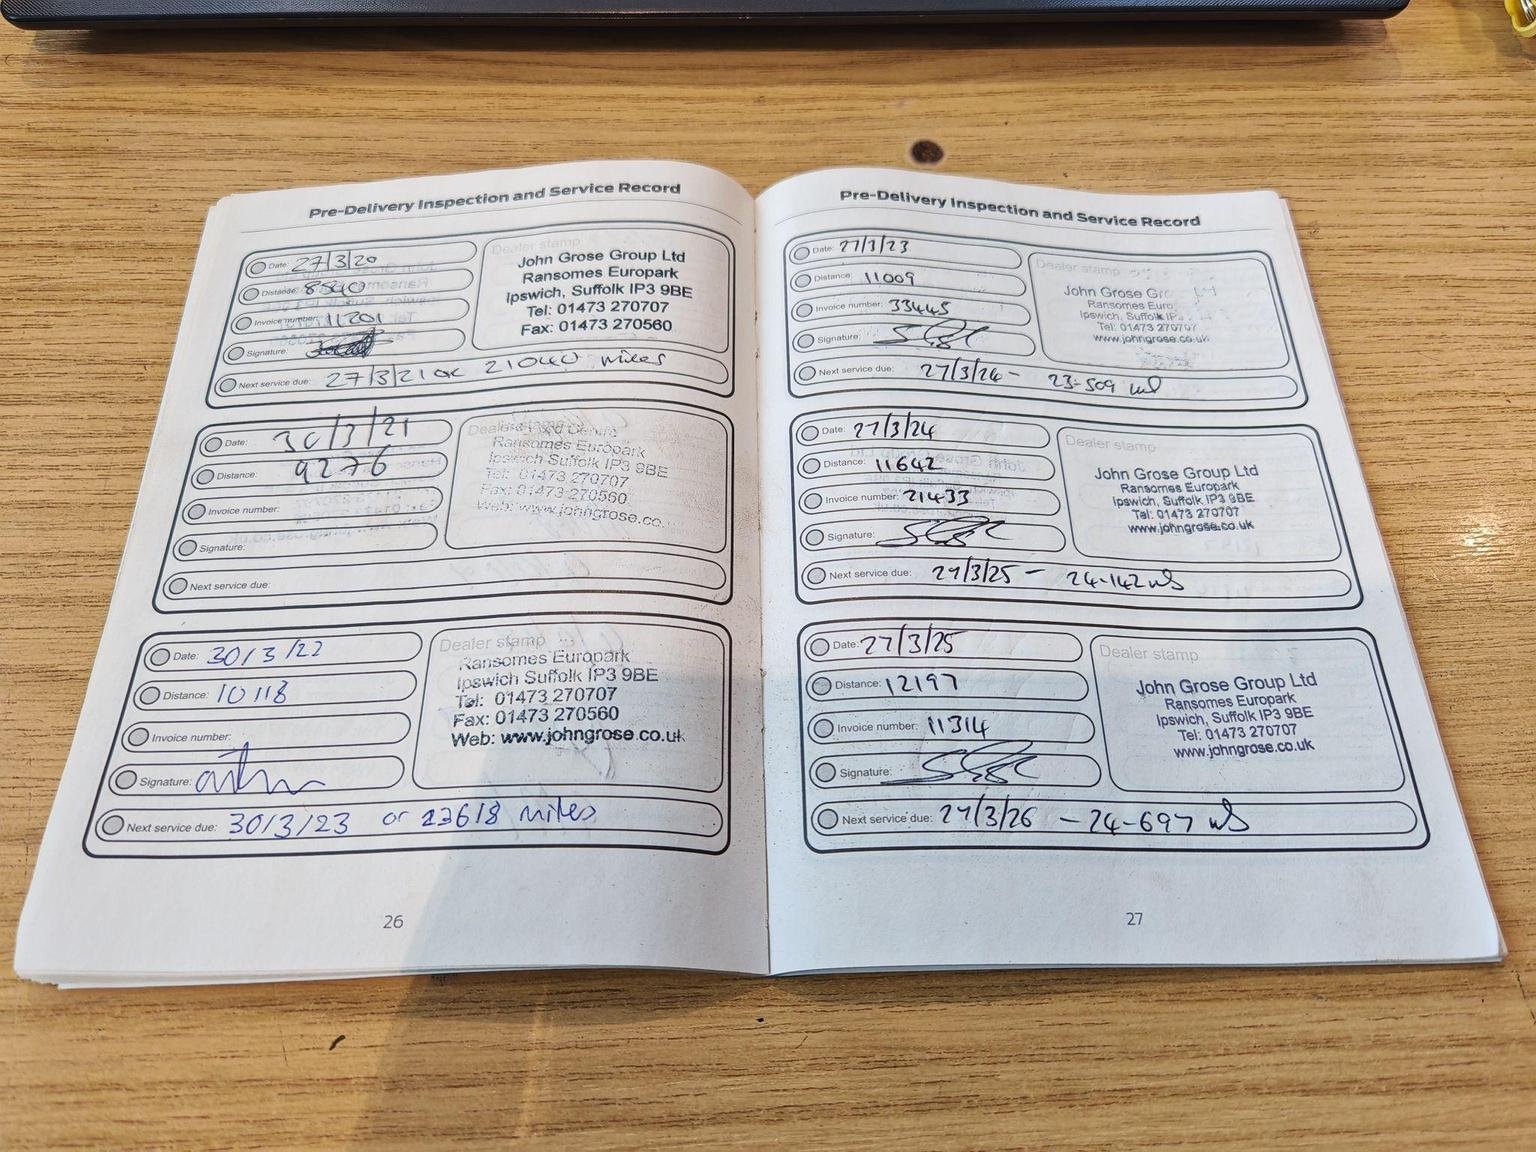 Pre-Delivery Inspection and Service Record
Date: 27/3/20
Distance: 8540
Invoice number: 11201
Signature:
Next service due: 27/3/21 or 21040 miles
Dealer stamp
John Grose Group Ltd
Ransomes Europark
Ipswich, Suffolk IP3 9BE
Tel: 01473 270707
Fax: 01473 270560
Date: 30/3/21
Distance: 9276
Invoice number:
Signature:
Next service due:
Dealer stamp
Ransomes Europark
Ipswich Suffolk IP3 9BE
Tel: 01473 270707
Fax: 01473 270560
Web: www.johngrose.co.
Date: 30/3/22
Distance: 10118
Invoice number:
Signature:
Next service due: 30/3/23 or 22618 miles
Dealer stamp
Ransomes Europark
Ipswich Suffolk IP3 9BE
Tel: 01473 270707
Fax: 01473 270560
Web: www.johngrose.co.uk
26
Pre-Delivery Inspection and Service Record
Date: 27/3/23
Distance: 11009
Invoice number: 33445
Signature:
Next service due: 27/3/24 - 23-509
Dealer stamp
John Grose
Ransomes Euro
Ipswich, Suffolk IP
Tel: 01473 270707
www.johngrose.co.uk
Date: 27/3/24
Distance: 11642
Invoice number: 21433
Signature:
Next service due: 27/3/25 - 24-142
Dealer stamp
John Grose Group Ltd
Ransomes Europark
Ipswich, Suffolk IP3 9BE
Tel: 01473 270707
www.johngrose.co.uk
Date: 27/3/25
Distance: 12197
Invoice number: 11314
Signature:
Next service due: 27/3/26 - 24-697
Dealer stamp
John Grose Group Ltd
Ransomes Europark
Ipswich, Suffolk IP3 9BE
Tel: 01473 270707
www.johngrose.co.uk
27